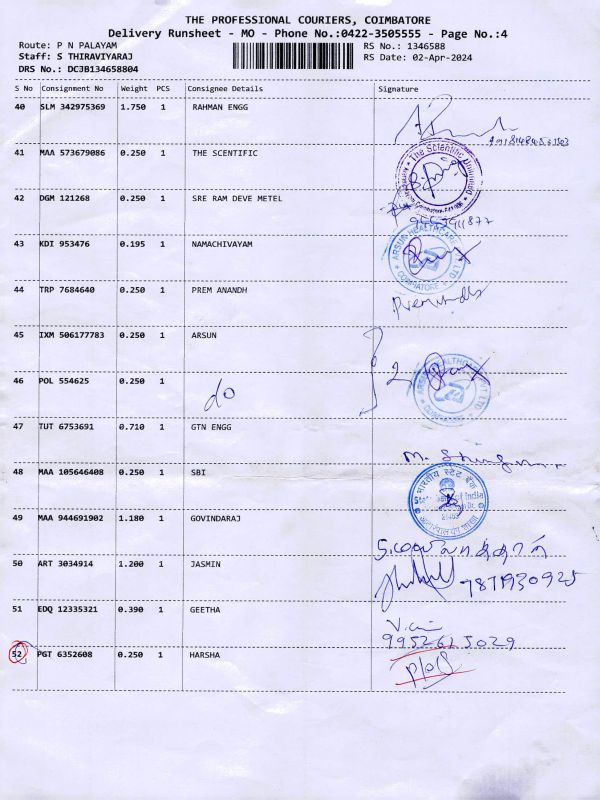 THE PROFESSIONAL COURIERS, COIMBATORE
Delivery Runsheet - MO - Phone No.:0422-3505555 - Page No.:4
Route: P N PALAYAM RS No.: 1346588
Staff: S THIRAVIYARAJ RS Date: 02-Apr-2024
DRS No.: DCJB134658804
S No Consignment No Weight PCS Consignee Details Signature
40 SLM 342975369 1.750 1 RAHMAN ENGG
41 MAA 573679086 0.250 1 THE SCIENTIFIC
The Scientific
42 DGM 121268 0.250 1 SRE RAM DEVE METEL
43 KDI 953476 0.195 1 NAMACHIVAYAM
ARSUN HEALTHCARE LTD
COIMBATORE
44 TRP 7684640 0.250 1 PREM ANANDH
45 IXM 506177783 0.250 1 ARSUN
46 POL 554625 0.250 1 do 2
47 TUT 6753691 0.710 1 GTN ENGG
M.
48 MAA 105646408 0.250 1 SBI
भारतीय स्टेट बैंक
49 MAA 944691902 1.180 1 GOVINDARAJ
50 ART 3034914 1.200 1 JASMIN 7871930925
51 EDQ 12335321 0.390 1 GEETHA
9952615029
52 PGT 6352608 0.250 1 HARSHA